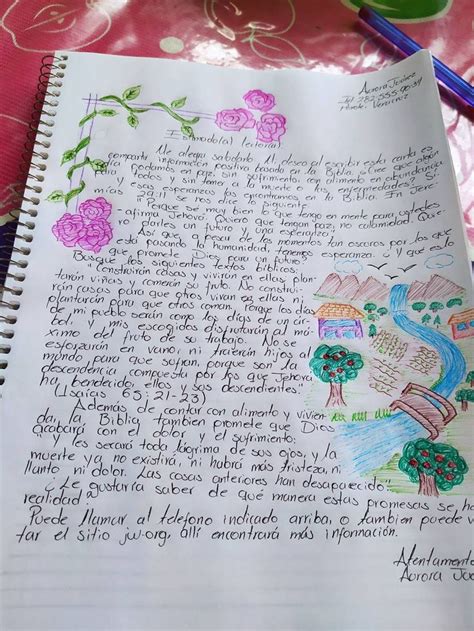 Aurora Juárez
Tel. 282-555-90-34
Perote, Veracruz
Estimado(a) lector(a)
Me alegra saludarlo. Al deseo al escribir esta carta es
compartir información positiva basada en la Biblia. ¿Cree que algún
día podamos en paz, sin sufrimiento, con alimento en abundancia
para todos y sin temor a la muerte o las enfermedades? Sí
y esas esperanzas las encontramos en la Biblia. En Jere-
mías 29:11 se nos dice lo siguiente:
"Porque sé muy bien lo que tengo en mente para ustedes
-afirma Jehová. Quiero que tengan paz, no calamidad. Quie-
darles un futuro y una esperanza".
Así que, a pesar de los momentos tan oscuros por los que
está pasando la humanidad, tenemos esperanza. ¿Y qué es lo
que promete Dios para un futuro?
Busque los siguientes textos bíblicos:
"Construirán casas y vivirán en ellas, plan-
tarán viñas y comerán su fruto. No construi-
rán casas para que otros vivan en ellas ni
plantarán para que otros coman. Porque los días
de mi pueblo serán como los días de un ár-
bol, y mis escogidos disfrutarán al má-
ximo del fruto de su trabajo. No se
esforzarán en vano, ni traerán hijos al
mundo para que sufran, porque son la
descendencia compuesta por los que Jehová
ha bendecido, ellos y sus descendientes"
(Isaías 65:21-23)
Además de contar con alimento y vivien-
da, la Biblia también promete que Dios
acabará con el dolor y el sufrimiento:
"y les secará toda lágrima de sus ojos, y la
muerte ya no existirá, ni habrá más tristeza, ni
llanto ni dolor. Las cosas anteriores han desaparecido".
¿Le gustaría saber de qué manera estas promesas se ha
realidad?
Puede llamar al teléfono indicado arriba, o también puede
tar el sitio jw.org, allí encontrará más información.
Atentamente
Aurora Juá